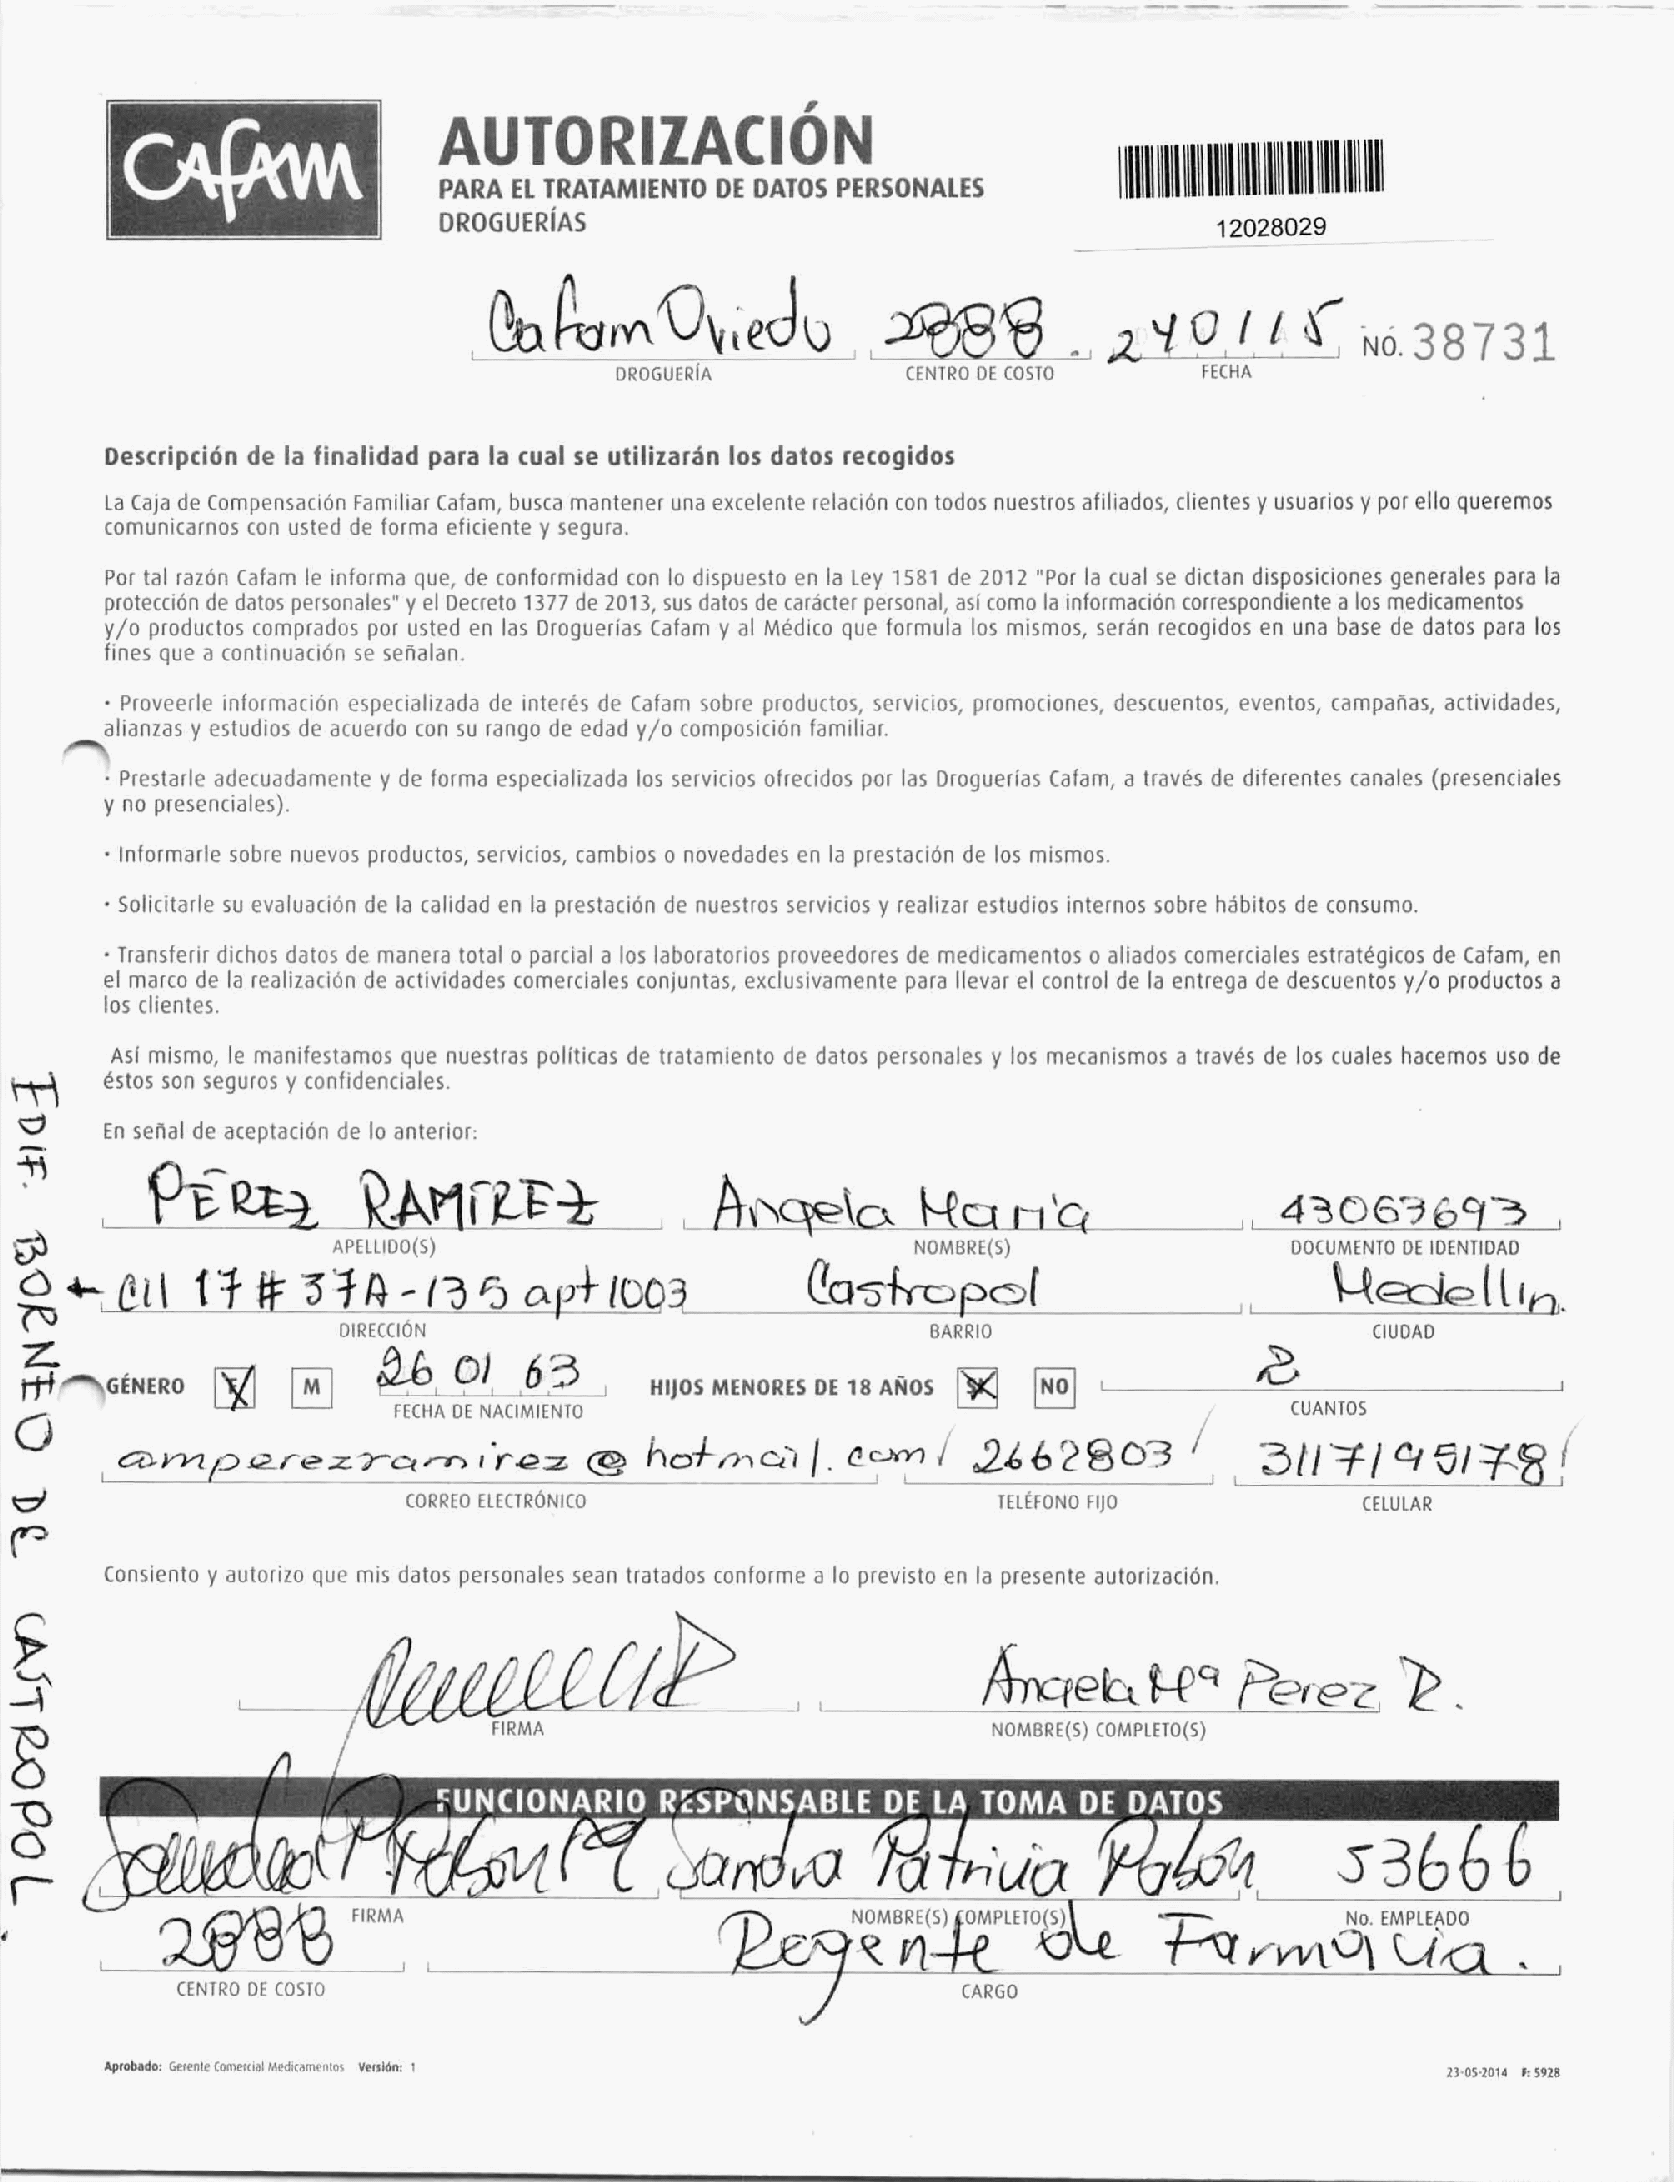 CAFAM
AUTORIZACIÓN
PARA EL TRATAMIENTO DE DATOS PERSONALES
DROGUERÍAS
12028029
Cafam Oviedo 2888 240115 NO. 38731
DROGUERÍA CENTRO DE COSTO FECHA
Descripción de la finalidad para la cual se utilizarán los datos recogidos
La Caja de Compensación Familiar Cafam, busca mantener una excelente relación con todos nuestros afiliados, clientes y usuarios y por ello queremos
comunicarnos con usted de forma eficiente y segura.
Por tal razón Cafam le informa que, de conformidad con lo dispuesto en la Ley 1581 de 2012 "Por la cual se dictan disposiciones generales para la
protección de datos personales" y el Decreto 1377 de 2013, sus datos de carácter personal, así como la información correspondiente a los medicamentos
y/o productos comprados por usted en las Droguerías Cafam y al Médico que formula los mismos, serán recogidos en una base de datos para los
fines que a continuación se señalan.
· Proveerle información especializada de interés de Cafam sobre productos, servicios, promociones, descuentos, eventos, campañas, actividades,
alianzas y estudios de acuerdo con su rango de edad y/o composición familiar.
· Prestarle adecuadamente y de forma especializada los servicios ofrecidos por las Droguerías Cafam, a través de diferentes canales (presenciales
y no presenciales).
· Informarle sobre nuevos productos, servicios, cambios o novedades en la prestación de los mismos.
· Solicitarle su evaluación de la calidad en la prestación de nuestros servicios y realizar estudios internos sobre hábitos de consumo.
· Transferir dichos datos de manera total o parcial a los laboratorios proveedores de medicamentos o aliados comerciales estratégicos de Cafam, en
el marco de la realización de actividades comerciales conjuntas, exclusivamente para llevar el control de la entrega de descuentos y/o productos a
los clientes.
Así mismo, le manifestamos que nuestras políticas de tratamiento de datos personales y los mecanismos a través de los cuales hacemos uso de
éstos son seguros y confidenciales.
En señal de aceptación de lo anterior:
PÉREZ RAMÍREZ Angela María 43063693
APELLIDO(S) NOMBRE(S) DOCUMENTO DE IDENTIDAD
Cll 17 # 37A-135 apt 1003 Castropol Medellin.
DIRECCIÓN BARRIO CIUDAD
GÉNERO F M 26 01 63 HIJOS MENORES DE 18 AÑOS SI NO 2
FECHA DE NACIMIENTO CUANTOS
amperezramirez@hotmail.com/ 2662803/ 3117195178/
CORREO ELECTRÓNICO TELÉFONO FIJO CELULAR
EDIF. BORNEO DE CASTROPOL.
Consiento y autorizo que mis datos personales sean tratados conforme a lo previsto en la presente autorización.
Angela Mª Perez R.
FIRMA NOMBRE(S) COMPLETO(S)
FUNCIONARIO RESPONSABLE DE LA TOMA DE DATOS
Sandra Patricia Pabón 53666
FIRMA NOMBRE(S) COMPLETO(S) No. EMPLEADO
2888 Regente de Farmacia.
CENTRO DE COSTO CARGO
Aprobado: Gerente Comercial Medicamentos Versión: 1
23-05-2014 F: 5928